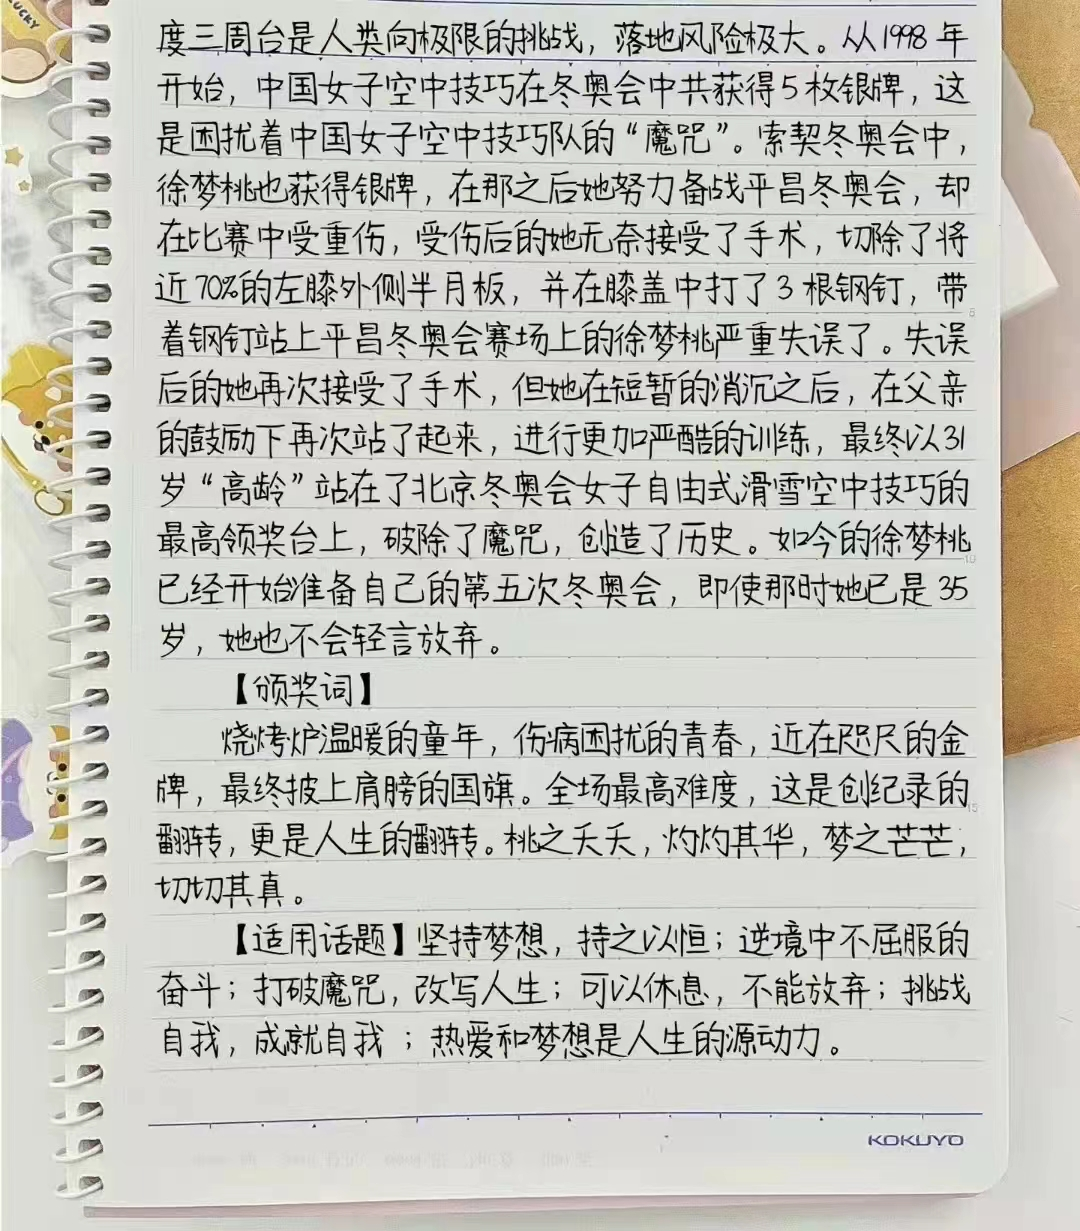 度三周台是人类向极限的挑战，落地风险极大。从1998年
开始，中国女子空中技巧在冬奥会中共获得5枚银牌，这
是困扰着中国女子空中技巧队的“魔咒”。索契冬奥会中，
徐梦桃也获得银牌，在那之后她努力备战平昌冬奥会，却
在比赛中受重伤，受伤后的她无奈接受了手术，切除了将
近70%的左膝外侧半月板，并在膝盖中打了3根钢钉，带
着钢钉站上平昌冬奥会赛场上的徐梦桃严重失误了。失误
后的她再次接受了手术，但她在短暂的消沉之后，在父亲
的鼓励下再次站了起来，进行更加严酷的训练，最终以31
岁“高龄”站在了北京冬奥会女子自由式滑雪空中技巧的
最高领奖台上，破除了魔咒，创造了历史。如今的徐梦桃
已经开始准备自己的第五次冬奥会，即使那时她已是35
岁，她也不会轻言放弃。
【颁奖词】
烧烤炉温暖的童年，伤病困扰的青春，近在咫尺的金
牌，最终披上肩膀的国旗。全场最高难度，这是创纪录的
翻转，更是人生的翻转。桃之夭夭，灼灼其华，梦之芒芒，
切切其真。
【适用话题】坚持梦想，持之以恒；逆境中不屈服的
奋斗；打破魔咒，改写人生；可以休息，不能放弃；挑战
自我，成就自我；热爱和梦想是人生的源动力。
KOKUYO
LUCKY
5
10
15